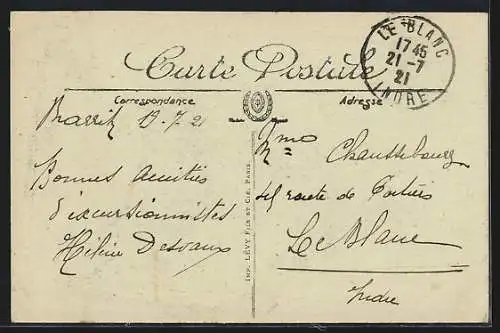 Carte Postale
Correspondance
Adresse
LE BLANC
17 45
21 - 7
21
INDRE
19-7-21
Bonnes amitiés
d'excursionnistes
Hélène Desvaux
IMP. LÉVY FILS ET CIE, PARIS.
Mme
route de Poitiers
Le Blanc
Indre